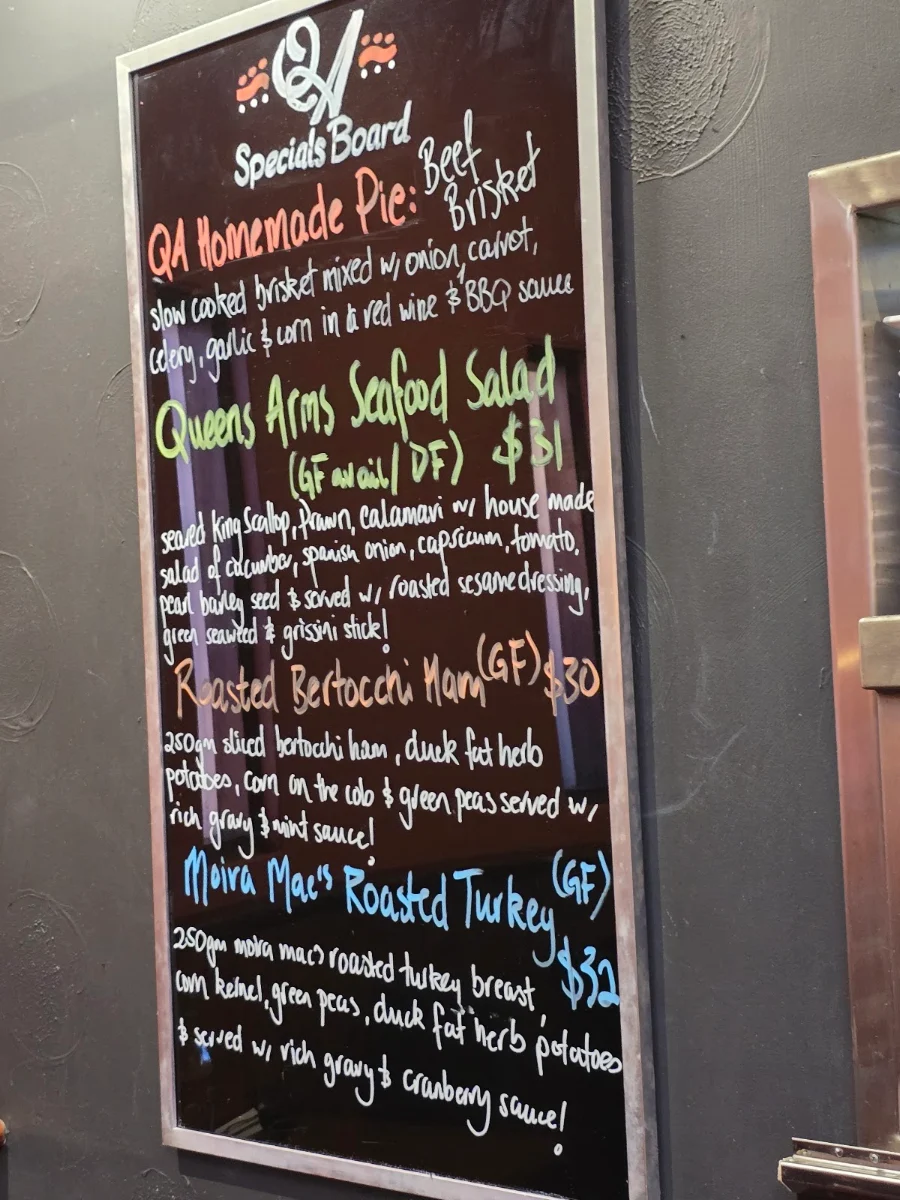 QA
Specials Board
QA Homemade Pie: Beef Brisket
slow cooked brisket mixed w/ onion, carrot,
celery, garlic & corn in a red wine & BBQ sauce
Queens Arms Seafood Salad
(GF avail/DF) $31
seared King Scallop, Prawn, calamari w/ house made
salad of cucumber, spanish onion, capsicum, tomato,
pearl barley seed & served w/ roasted sesame dressing,
green seaweed & grissini stick!
Roasted Bertocchi Ham (GF) $30
250gm sliced bertocchi ham, duck fat herb
potatoes, corn on the cob & green peas served w/
rich gravy & mint sauce!
Moira Mac's Roasted Turkey (GF)
$32
250gm moira mac's roasted turkey breast,
corn kernel, green peas, duck fat herb potatoes
& served w/ rich gravy & cranberry sauce!